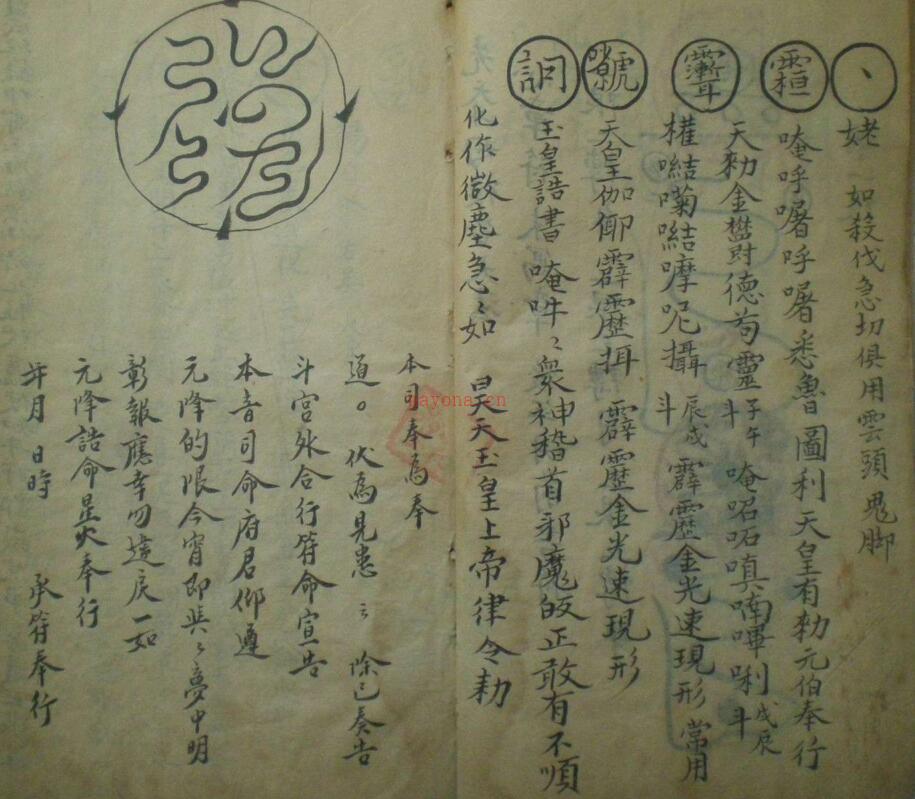 丶
姥 如殺伐急切俱用雲頭鬼脚
唵呼囑呼囑悉魯圖利天皇有勑元伯奉行
天勑金 德荀靈子午斗 唵 喃嗶唎戌辰斗
權 摩呢攝辰戌斗 霹靂金光速現形常用
天皇伽 霹靂揖 霹靂金光速現形
玉皇誥書唵吽〻衆神稽首邪魔皈正敢有不順
化作微塵急〻如 昊天玉皇上帝律令勑
本司奉爲奉
道○ 伏爲見患〻 除已奏告
斗宮外合行符命宣告
本音司命府君仰遵
元降的限今宵即與〻夢中明
彰報應幸勿違戾一如
元降誥命星火奉行
年月日時 承符奉行
nayona.cn